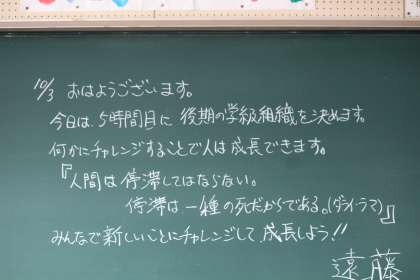 10/3 おはようございます。
今日は、5時間目に 後期の学級組織を決めます。
何かにチャレンジすることで人は成長できます。
『人間は停滞してはならない。
停滞は一種の死だからである。(ダライ・ラマ)』
みんなで新しいことにチャレンジして、成長しよう!!
遠藤